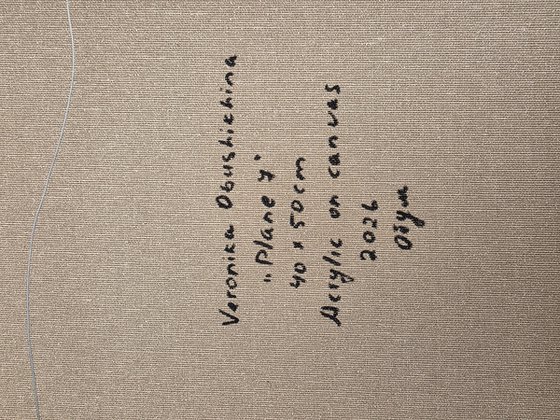 Veronika Obushichina
"Plane 7"
40 x 50cm
Acrylic on canvas
2026